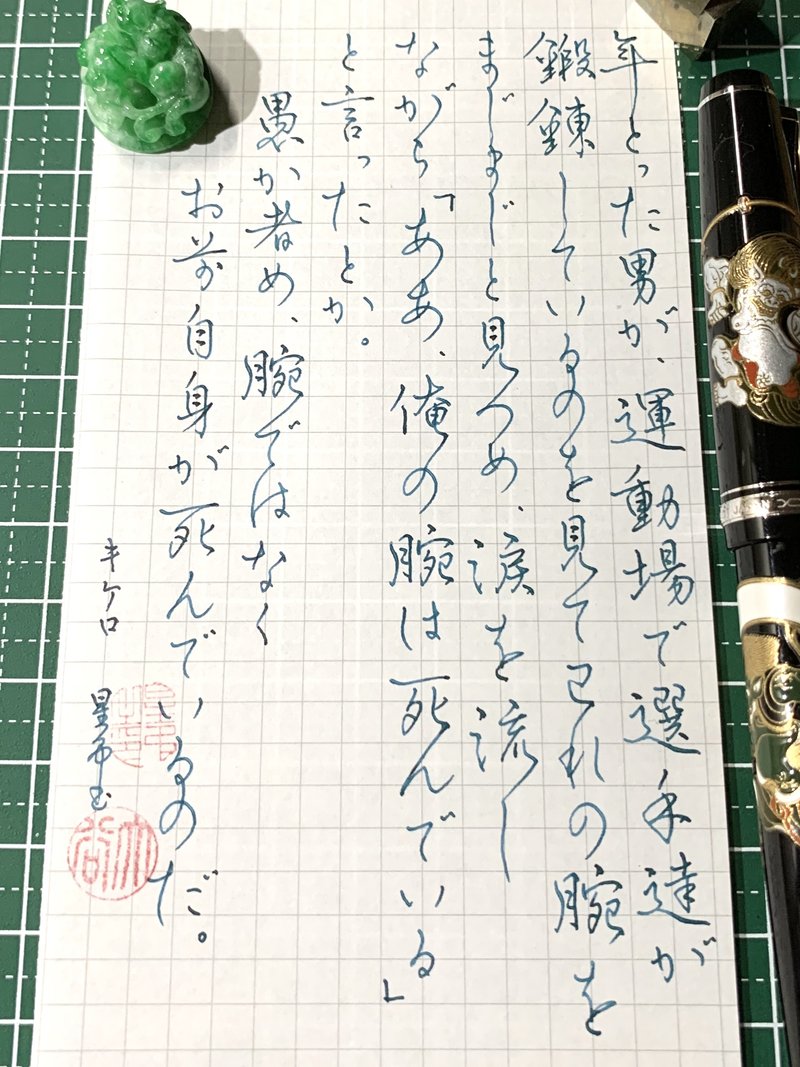 年とった男が、運動場で選手達が
鍛錬しているのを見て己れの腕を
まじまじと見つめ、涙を流し
ながら「ああ、俺の腕は死んでいる」
と言ったとか。
愚か者め、腕ではなく
お前自身が死んでいるのだ。
キケロ